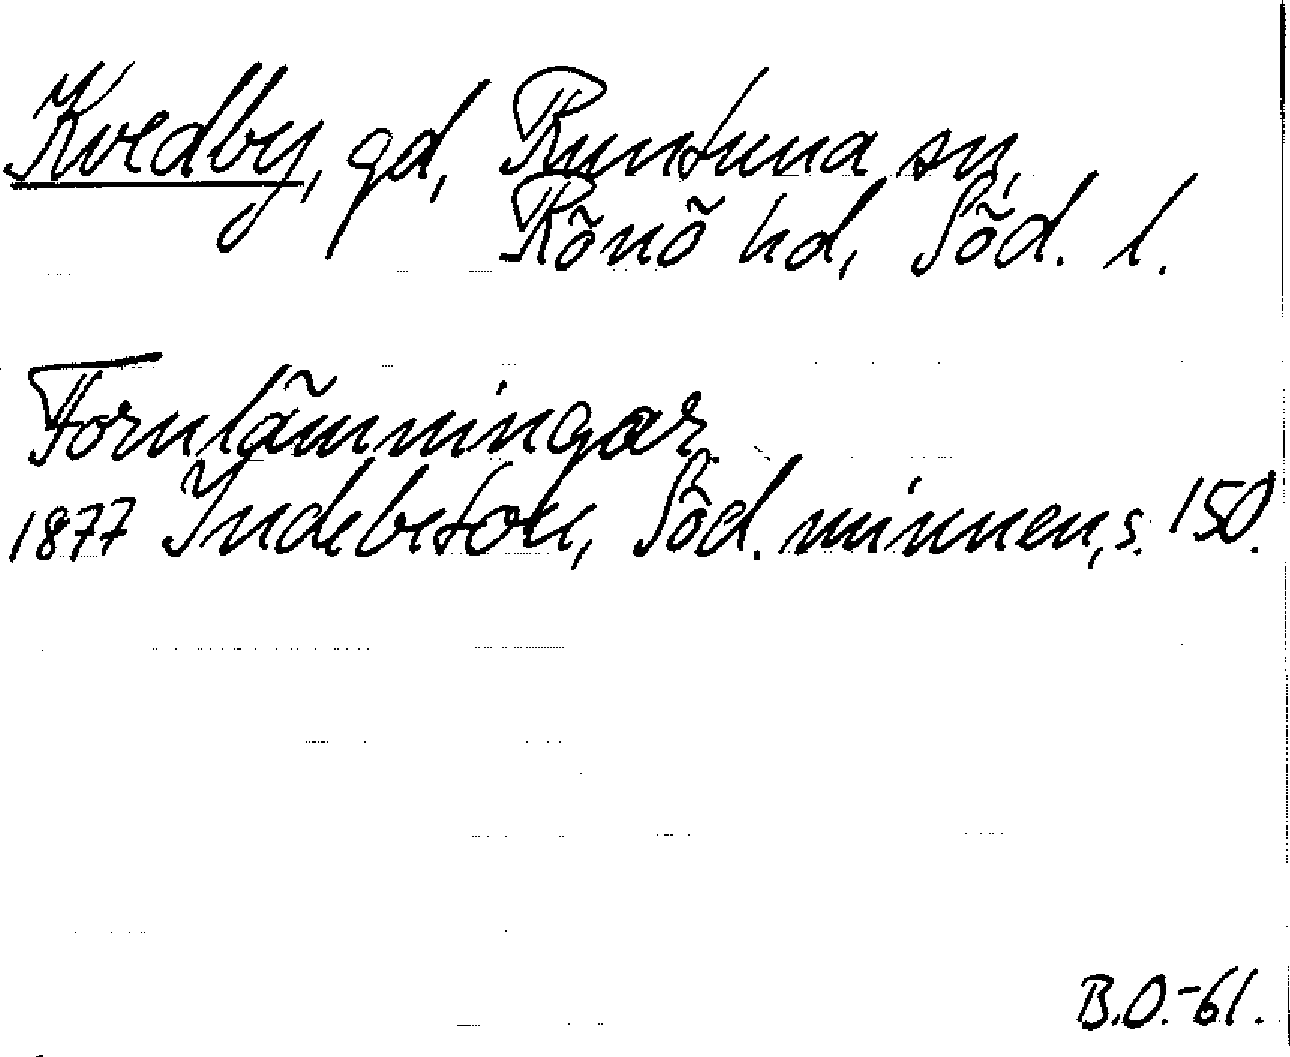 Kvedby, gd, Runtuna sn,
Rönö hd, Söd. l.
Fornlämningar
1877 Indebetou, Söd. minnen, s. 150.
B.O.-61.